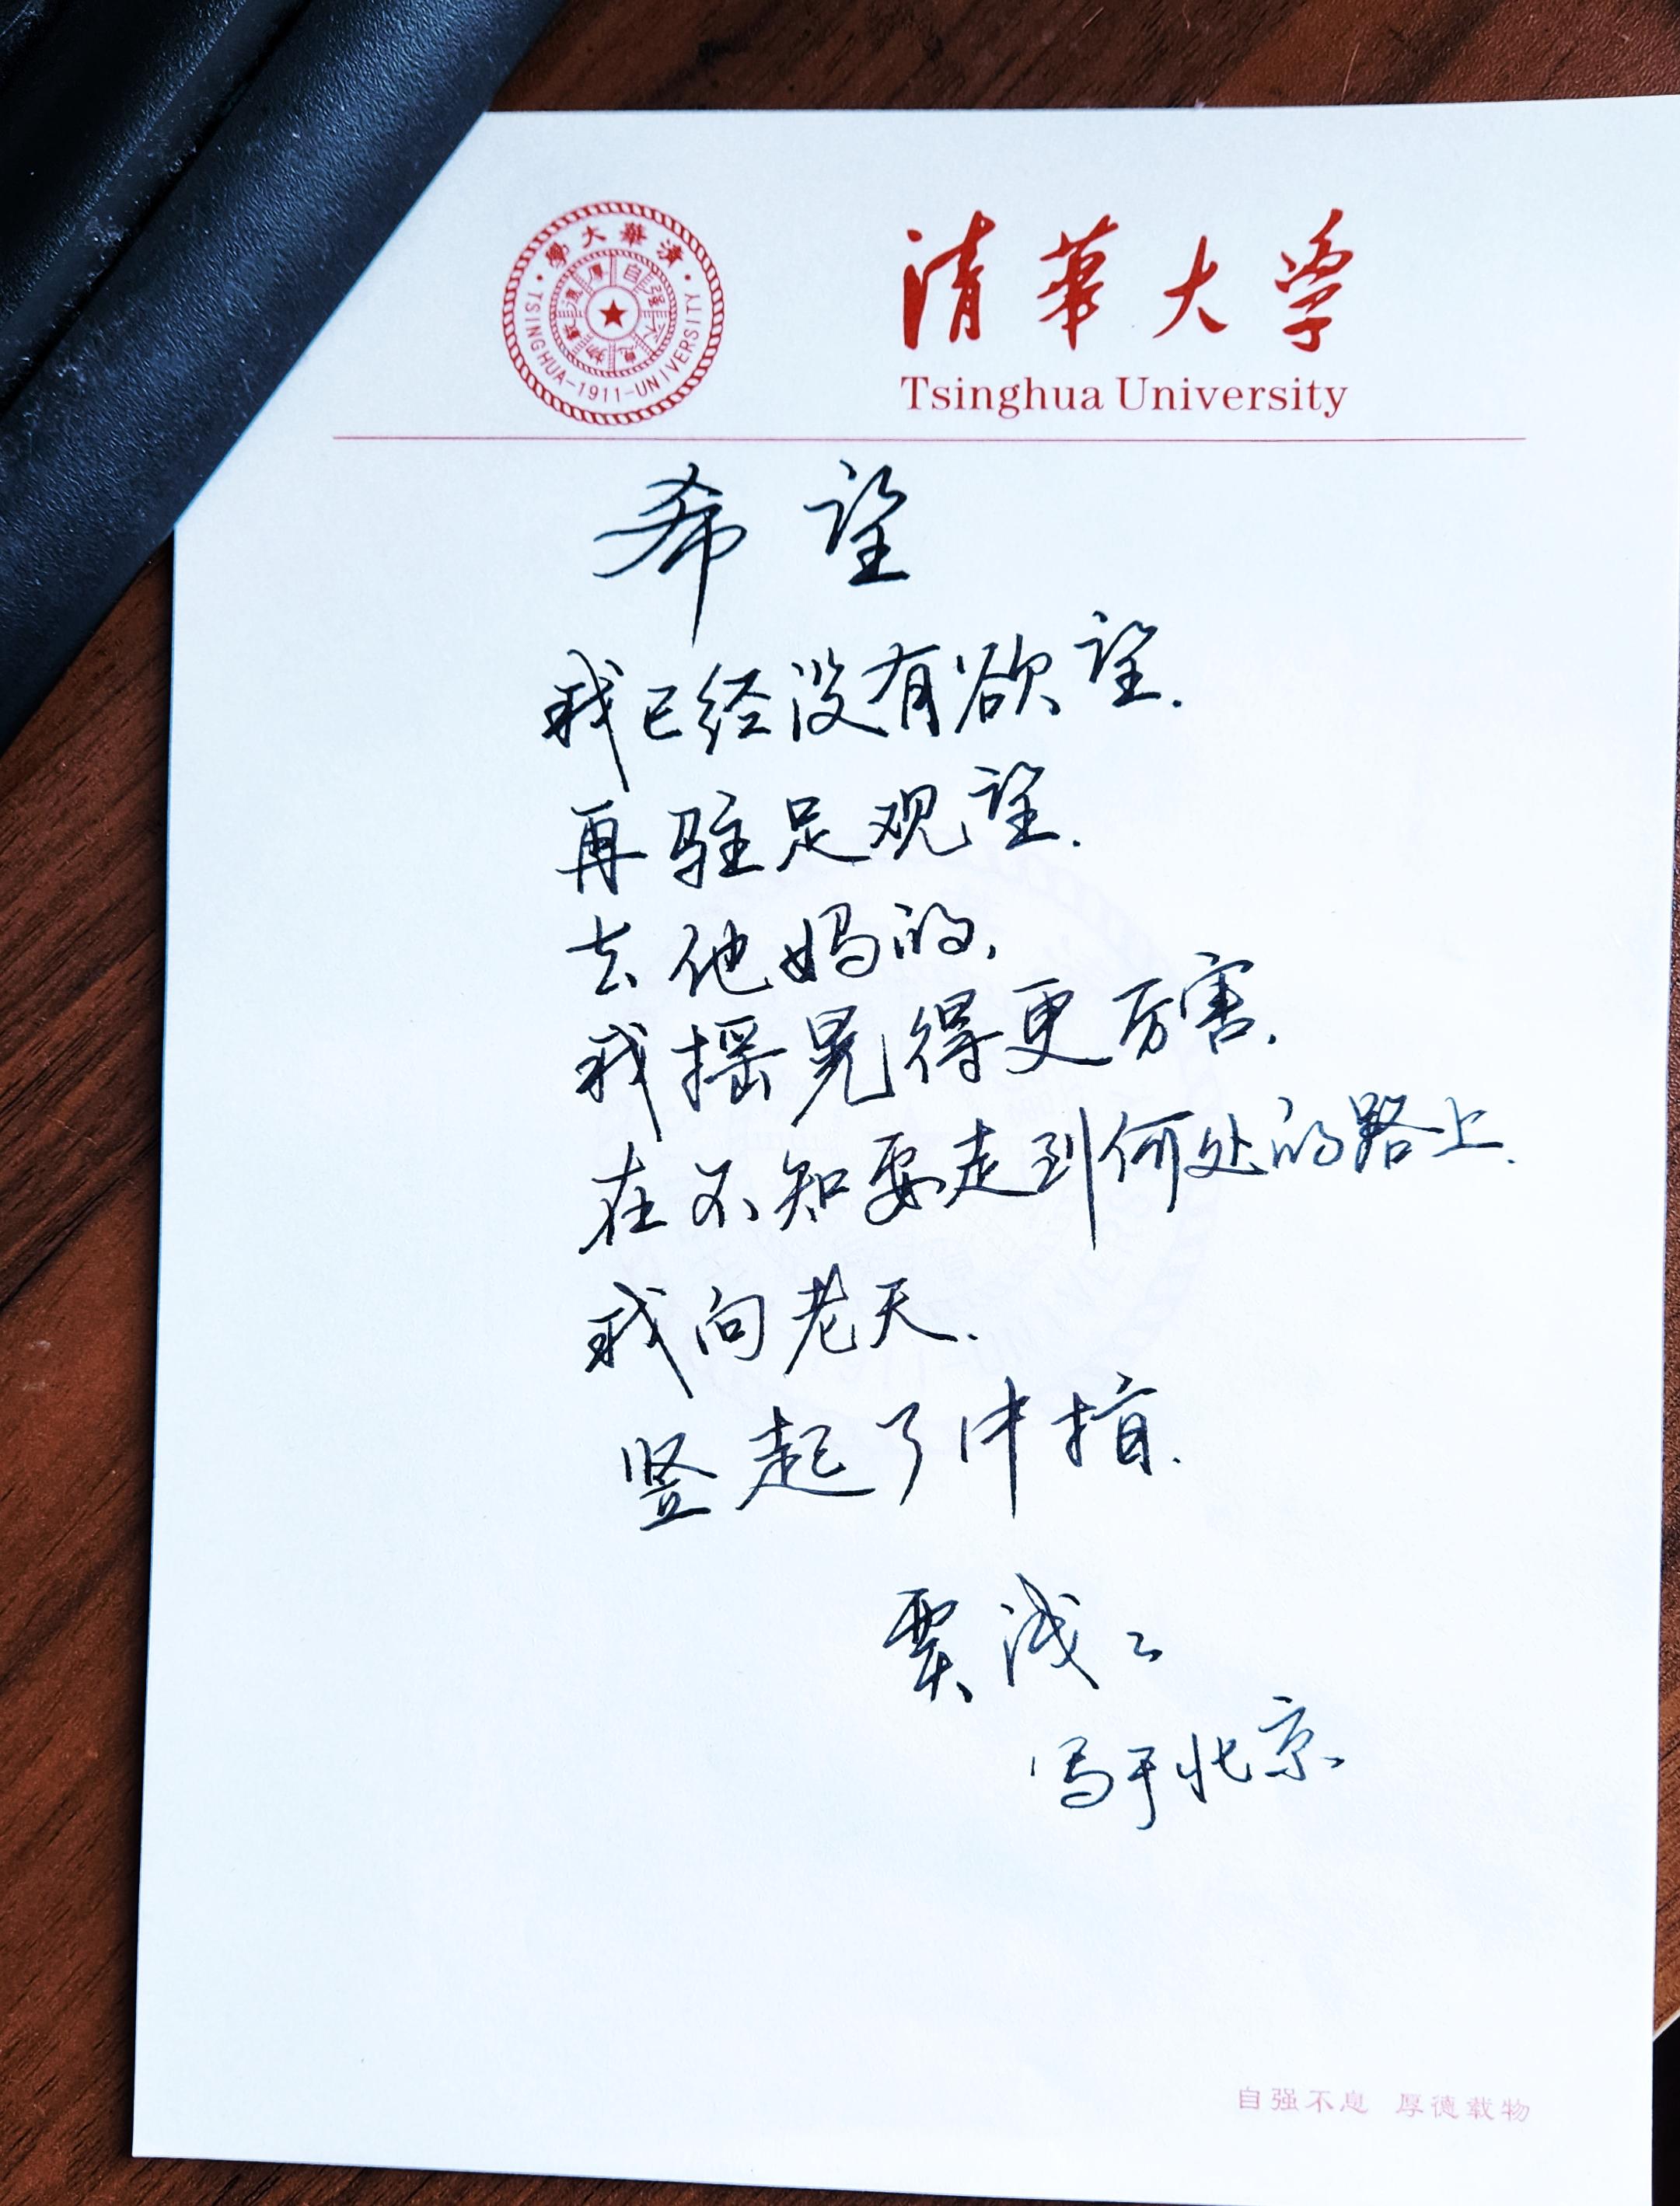 清華大學
TSINGHUA-1911-UNIVERSITY
自强不息
厚德載物
清华大学
Tsinghua University
希望
我已经没有欲望.
再驻足观望.
去他妈的,
我摇晃得更厉害.
在不知要走到何处的路上.
我向老天.
竖起了中指.
贾浅々
写于北京
自强不息 厚德载物